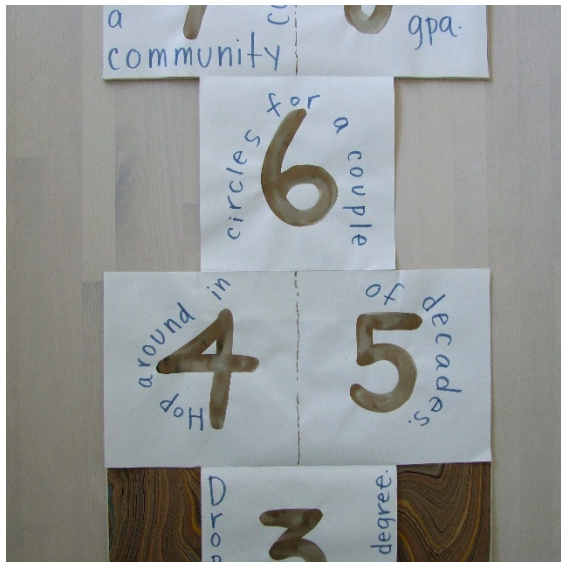 a
community
gpa.
6
circles for a couple
4
Hop around in
5
of decades.
3
degree.